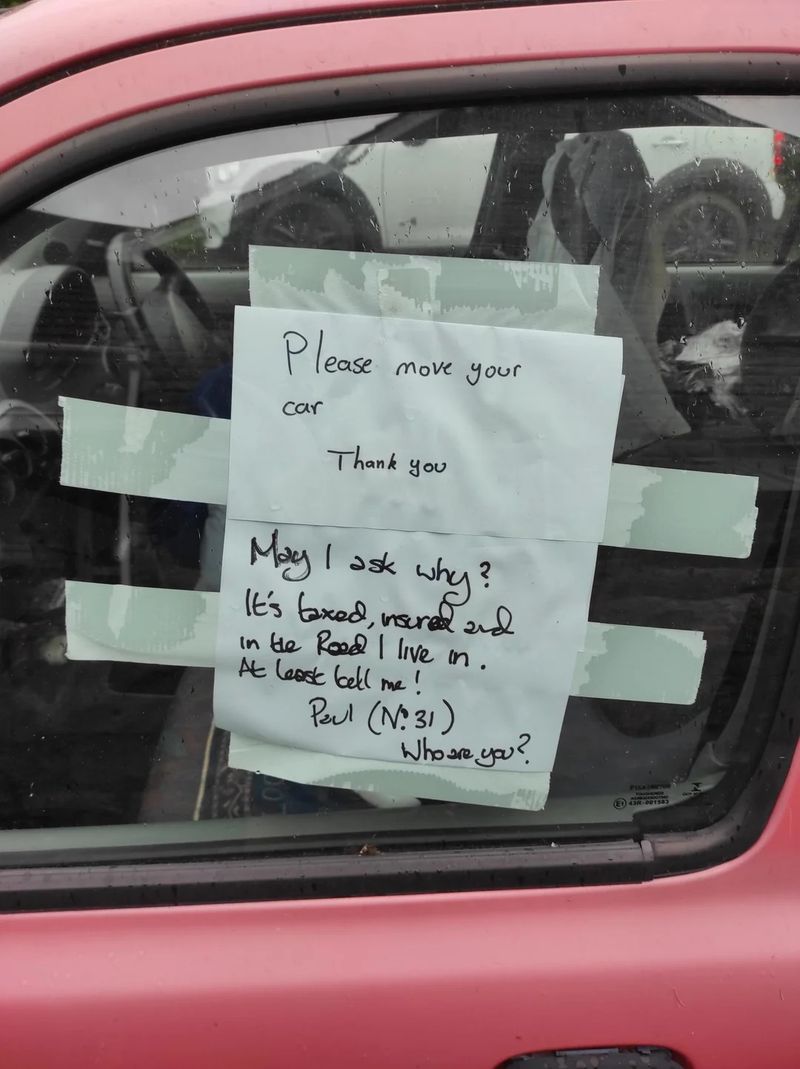 Please move your
car
Thank you
May I ask why?
It's taxed, insured and
in the Road I live in.
At least tell me!
Paul (Nº 31)
Who are you?
TOUGHENED
43R-001583